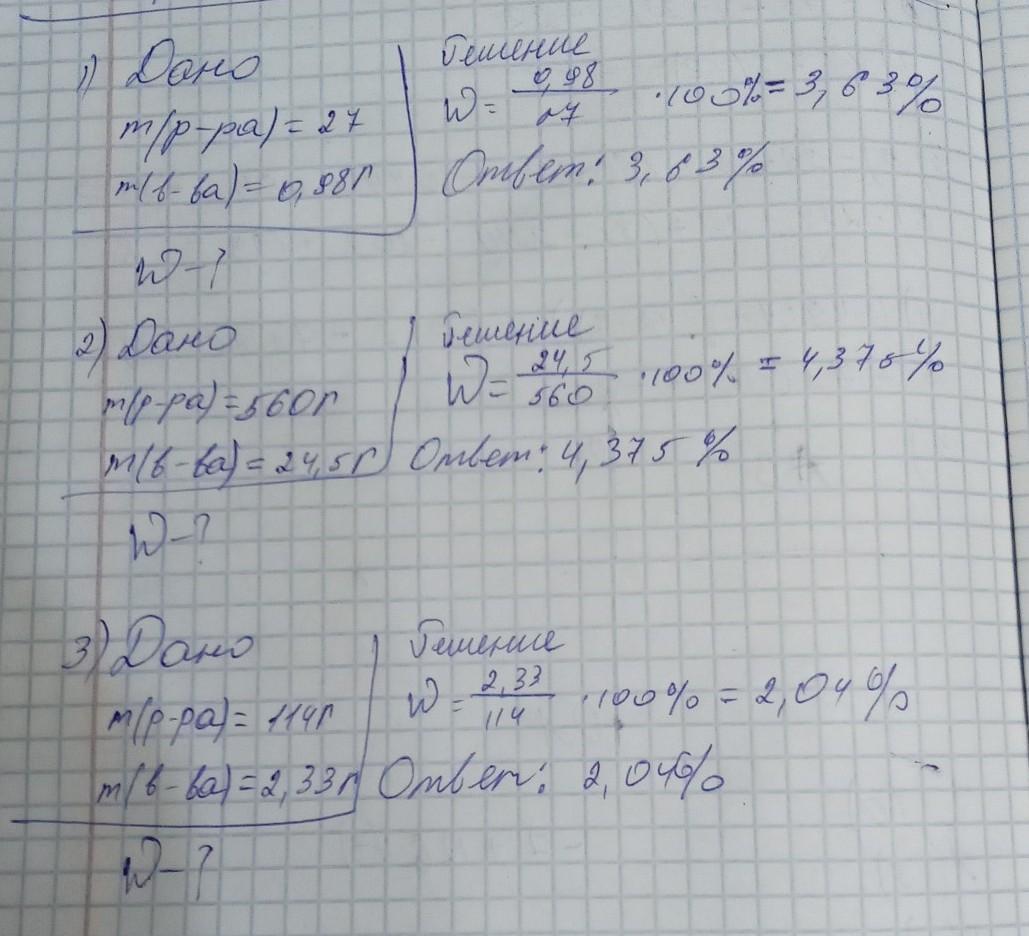 1) Дано
m(р-ра) = 27
m(в-ва) = 0,98г
W-?
Решение
W = 0,98/27 · 100% = 3,63%
Ответ: 3,63%
2) Дано
m(р-ра) = 560г
m(в-ва) = 24,5г
W-?
Решение
W = 24,5/560 · 100% = 4,375%
Ответ: 4,375%
3) Дано
m(р-ра) = 114г
m(в-ва) = 2,33г
W-?
Решение
W = 2,33/114 · 100% = 2,04%
Ответ: 2,04%